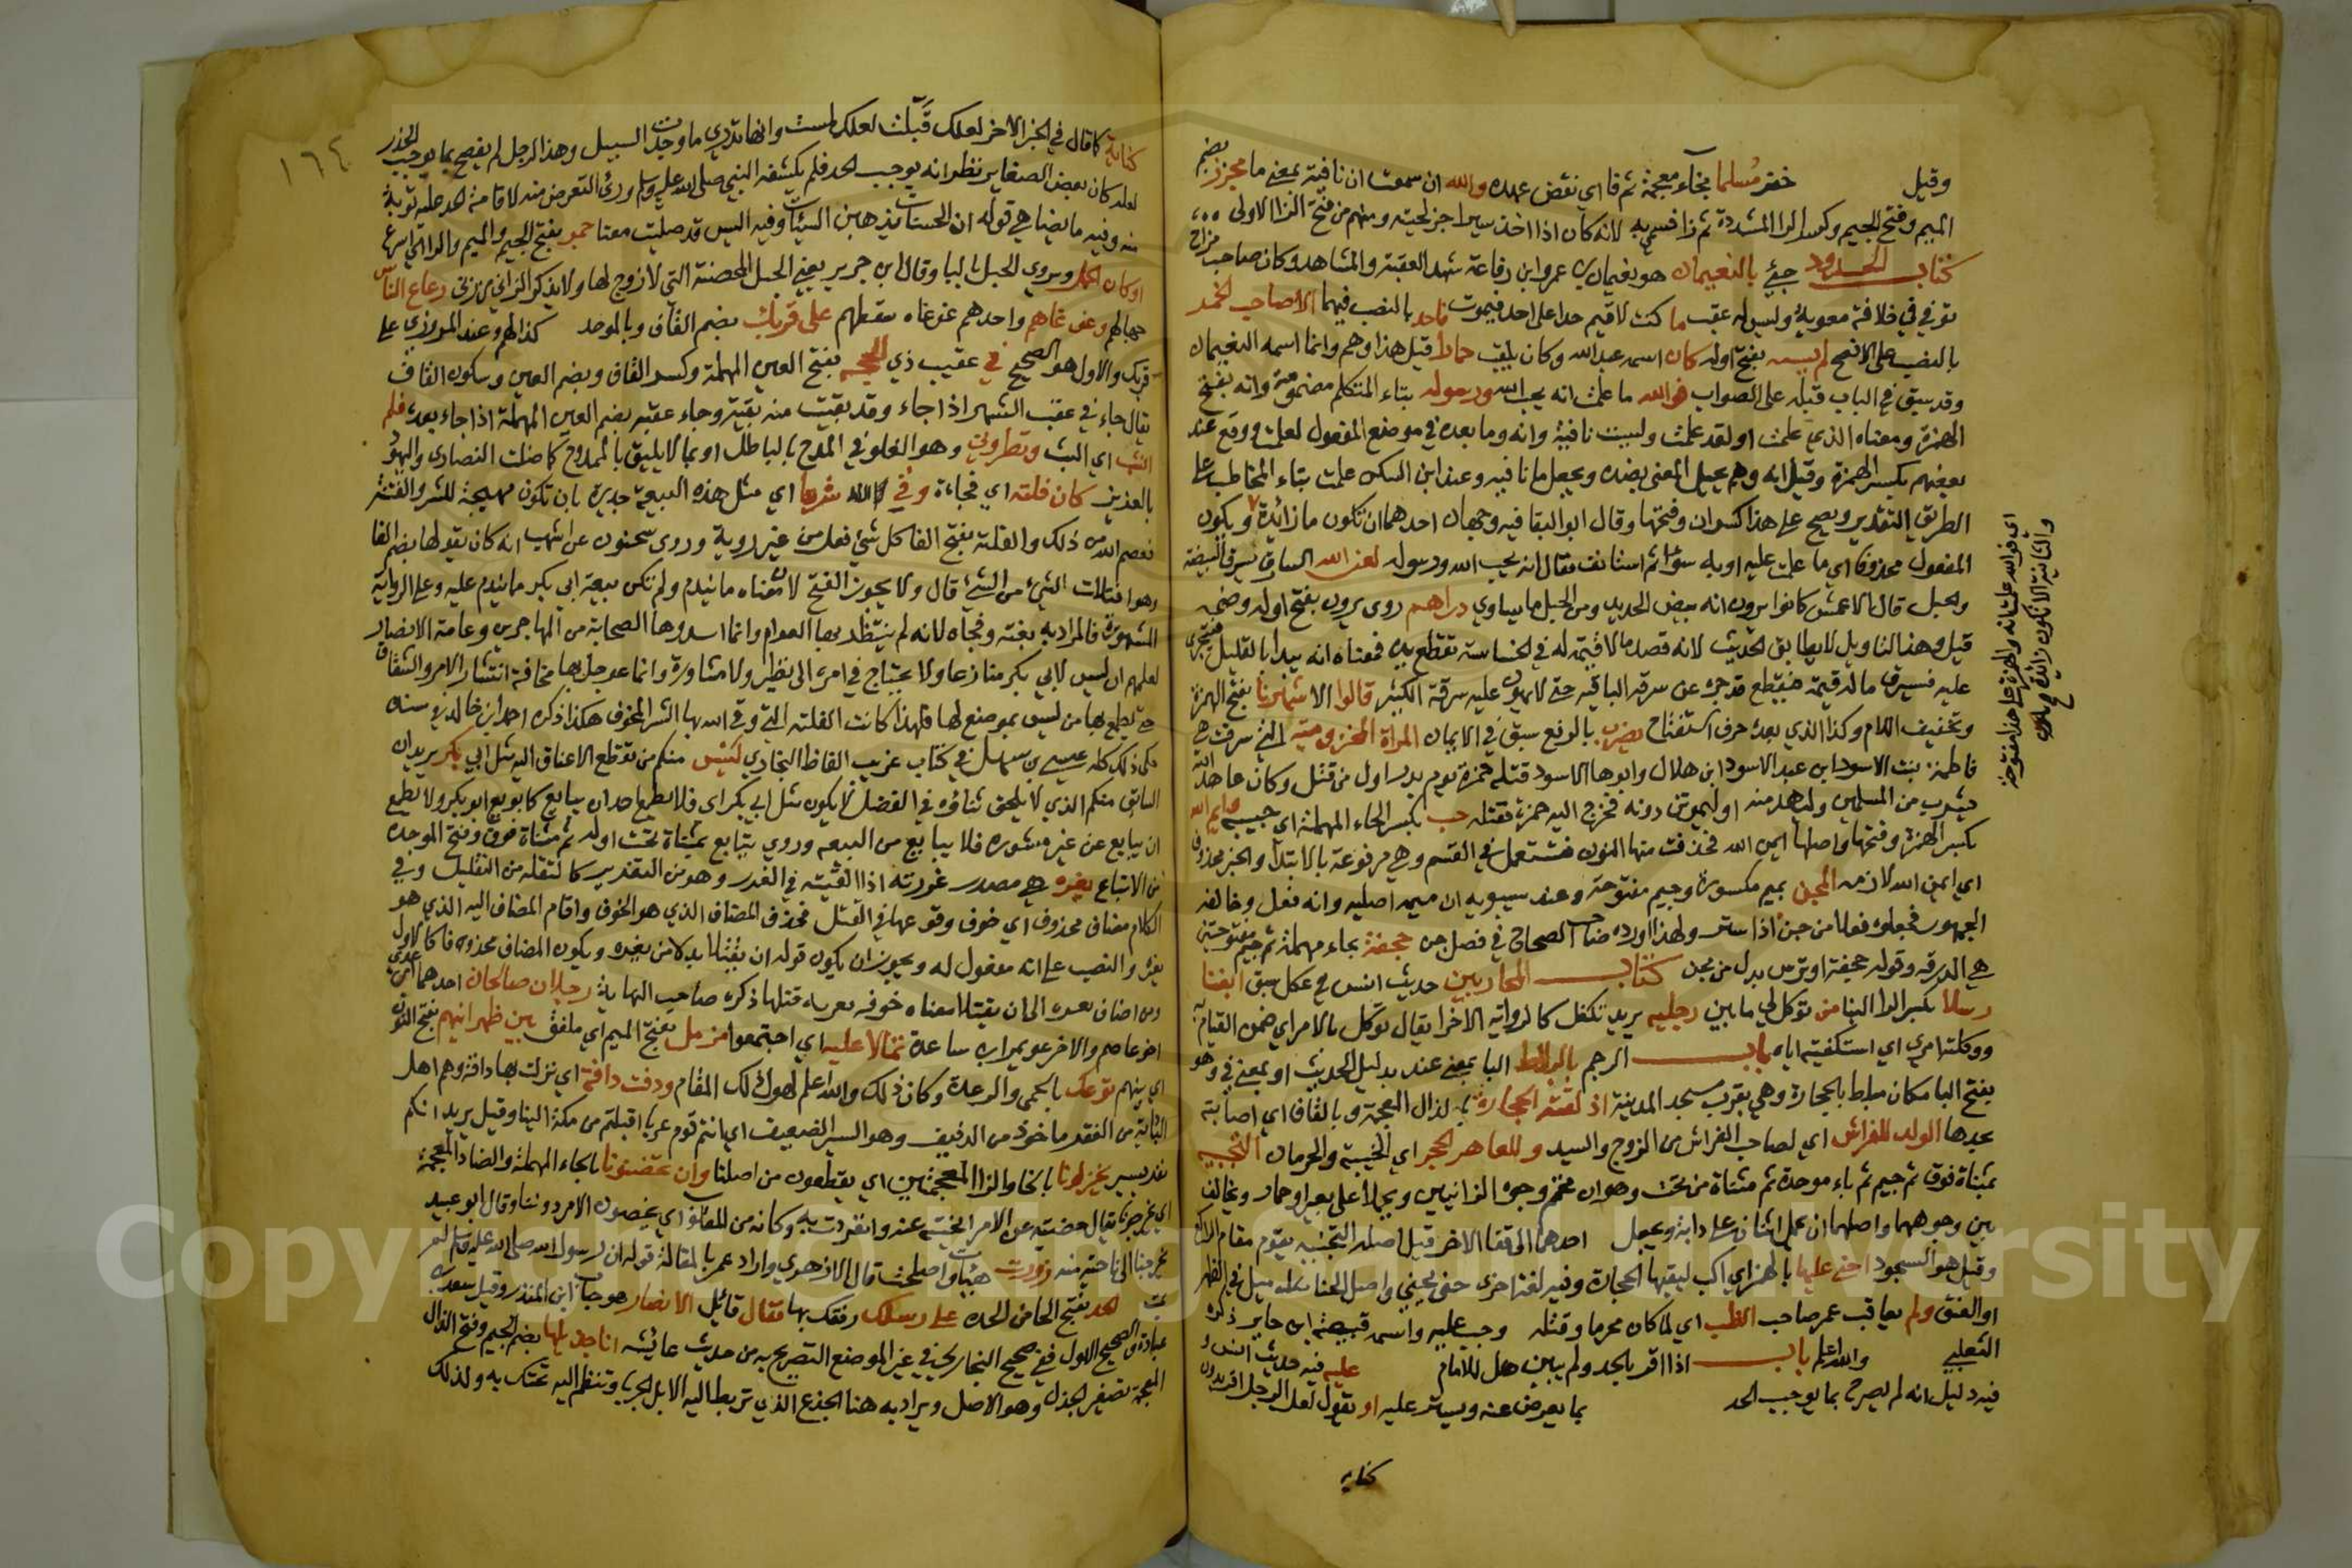 وقيل خفر مسلما بخاء معجمة ثم فا اي نقض عهده والله ان سمعت ان نافية بمعنى ما مجزز بضم
الميم وفتح الجيم وكسر الزا المشددة ثم زا فسمي به لانه كان اذا اخذ اسيرا جز لحيته ومنهم من فتح الزا الاولى
كتاب الحدود جئ بالنعيمان هو نعيمان بن عمرو ابن رفاعة شهد العقبة والمشاهد وكان صاحب مزاح
توفي في خلافة معوية وليس له عقب ما كنت لاقيم حدا على احد فيموت فاجد بالنصب فيهما الا صاحب الخمر
بالنصب على الافصح لم يسنه بفتح اوله كان اسمه عبد الله وكان يلقب حمارا قيل هذا وهم وانما اسمه النعيمان
وقد سبق في الباب قبله على الصواب فوالله ما علمت انه يحب الله ورسوله بتاء المتكلم مضمومة وانه بفتح
الهمزة ومعناه الذي علمت او لقد علمت وليست نافية وانه وما بعده في موضع المفعول لعلمت ووقع عند
بعضهم بكسر الهمزة وقيل انه وهم يحيل المعنى بضده ويجعل ما نافيه وعند ابن السكن علمت بتاء المخاطب على
الطريق التقدير ويصح على هذا كسر ان وفتحها وقال ابو البقا فيه وجهان احدهما ان تكون ما زائدة ويكون
المفعول محذوفا اي ما علمت عليه او به سؤا ثم استانف فقال انه يحب الله ورسوله لعن الله السارق يسرق البيضة
والحبل قال الاعمش كانوا يرون انه بيض الحديد ومن الحبل ما يساوي دراهم روي يرون بفتح اوله وضمه
قيل وهذا التاويل لا يطابق الحديث لانه قصد ما لا قيمة له في الخساسة تقطع يده فمعناه انه يبدا بالقليل فيتجرى
عليه فيسرق ما له قيمة فيقطع قد جره عن سرقه الباقيه حتى لا يهون عليه سرقة الكثير قالوا الا شهرنا بفتح الهمزة
وتخفيف اللام وكذا الذي بعده حرف استفتاح يضرب بالرفع سبق في الايمان المراة المخزومية التي سرقت هي
فاطمة بنت الاسود ابن عبد الاسود ابن هلال وابوها الاسود قتله حمزة يوم بدر اول من قتل وكان عاهد الله
ليشرب من المسلمين وليهدمنه او ليموتن دونه فخرج اليه حمزة فقتله حب بكسر الحاء المهملة اي حبيبه وايم الله
بكسر الهمزة وفتحها واصلها ايمن الله فحذفت منها النون فتستعمل في القسم وهي مرفوعة بالابتدا والخبر محذوف
اي ايمن الله لازمه المجن بميم مكسورة وجيم مفتوحة وعند سيبويه ان ميمه اصليه وانه فعل وخالفه
الجمهور فجعلوه مفعلا من جن اذا ستر ولهذا اورده صاحب الصحاح في فصل جن حجفة بحاء مهملة ثم جيم مفتوحتين
هي الدرقه وقوله حجفة او ترس بدل من مجن كتاب المحاربين حديث انس في عكل سبق ابغنا
رسلا بكسر الرا البنا من توكل لي ما بين رجليه يريد تكفل كالرواية الاخرا يقال توكل بالامر اي ضمن القيام به
ووكلته امري اي استكفيته اياه باب الرجم بالبلاط البا بمعنى عند بدليل الحديث او بمعنى في وهو
بفتح البا مكان مبلط بالحجارة وهي بقرب مسجد المدينة اذلقته الحجارة بالذال المعجمة وبالقاف اي اصابته
بحدها الولد للفراش اي لصاحب الفراش من الزوج والسيد وللعاهر الحجر اي الخيبة والحرمان التجبيه
بمثناة فوق ثم جيم ثم باء موحدة ثم مثناة من تحت وهو ان تحمم وجوه الزانيين ويحملا على بعير او حمار ويخالف
بين وجوههما واصلهما ان يحمل اثنان على دابة ويجعل احدهما الى قفا الاخر قيل اصله التجبيه يقوم مقام الراكع
وقيل هو السجود احنى عليها بالهمز اي اكب ليقيها الحجارة وفيه لغة اخرى حنى يحني واصل الحنا ميل في الظهر
او العنق ولم يعاقب عمر صاحب الظبي اي لما كان محرما وقتله وجب عليه واسمه قبيصة ابن جابر ذكره
الثعلبي والله اعلم باب اذا اقر بالحد ولم يبين هل للامام عليه فيه حديث انس
فيه دليل انه لم يصرح بما يوجب الحد بما يعرض عنه ويستر عليه او يقول لعل الرجل
كنايه
اي فوالله علمت انه والهمزة على هذا مفتوحة
والثانية الا تكون زائدة
١٦٤
كناية كما قال في الخبر الاخر لعلك قبلت لعلك لمست وانها تدري ما وجدت السبيل وهذا الرجل لم يفصح بما يوجب الحد
لعله كان بعض الصغاير نظر انه يوجب الحد فلم يكشفه النبي صلى الله عليه وسلم وراى التعرض منه لاقامة الحد عليه توبة
منه وفيه ما يضاهي قوله ان الحسنات يذهبن السيئات وفيه اليس قد صليت معنا جمز بفتح الجيم والميم والزا اي اسرع
او كان الحمل ويروي الحبل بالبا وقال ابن جرير يعني الحبل المحصنة التي لا زوج لها ولا يذكر الزاني من زنى رعاع الناس
جهالهم وغوغاهم واحدهم غوغاه سقطهم على قربك بضم القاف وبالموحد كذا لهم وعند المروزي على
قرنك والاول هو الصحيح في عقيب ذي الحجة بفتح العين المهملة وكسر القاف وبضم العين وسكون القاف
يقال جاء في عقب الشهر اذا جاء وقد بقيت منه بقية وجاء عقبه بضم العين المهملة اذا جاء بعده فلم
انشب اي البث وتطروني وهو الغلو في المدح بالباطل او بما لا يليق بالممدوح كما ضلت النصارى واليهود
بالعزيز كان فلته اي فجاءة وقي الله شرها اي مثل هذه البيعة جديرة بان تكون مهيجة للشر والفتنة
فعصم الله من ذلك والفلتة بفتح الفا كل شي فعل من غير روية وروي سحنون عن اشهب انه كان يقولها بضم الفا
وهو انفلات الشئ من الشئ قال ولا يجوز الفتح لان معناه ما يندم ولم تكن بيعة ابي بكر ما يندم عليه وعلى الرواية
المشهورة فالمراد به بغتة وفجاه لانه لم ينتظر بها العوام وانما ابتدرها الصحابة من المهاجرين وعامة الانصار
لعلمهم ان ليس لابي بكر منازعا ولا يحتاج في امره الى نظر ولا مشاورة وانما عوجل بها مخافة انتشار الامر والشقاق
حتى يطمع بها من ليس بموضع لها فلهذا كانت الفلتة التي وقى الله بها الشر المخوف هكذا ذكره احمد ابن خالد في سننه
حكى ذلك كله عيسى بن سهل في كتاب غريب الفاظ البخاري ليس منكم من تقطع الاعناق اليه مثل ابي بكر يريد ان
السابق منكم الذي لا يلحق ثناؤه في الفضل لا يكون مثل ابي بكر اي فلا يطمع احد ان يبايع كما بويع ابو بكر ولا يطمع
ان يبايع عن غير مشوره فلا يبايع من البيعه وروي يتابع بمثناة تحت اوله ثم مثناة فوق وفتح الموحده
من الاتباع تغره هي مصدر غررته اذا القيته في الغرر وهو من التغرير كالتعلة من التعليل وفي
الكلام مضاف محذوف اي خوف وقوعهما في القتل فحذف المضاف الذي هو الخوف واقام المضاف اليه الذي هو
تغره والنصب على انه مفعول له ويجوز ان يكون قوله ان يقتلا بدلا من تغره ويكون المضاف محذوف كالاول
ومن اضاف تغره الى ان يقتلا معناه خوف تغره قتلها ذكره صاحب النهاية رجلان صالحان احدهما معن بن عدي
اخو عاصم والاخر عويم ابن ساعدة تمالا عليه اي اجتمعوا مزمل بفتح الميم اي ملفق بين ظهرانيهم بفتح النون
اي بينهم توعك بالحمى والرعدة وكان ذلك والله اعلم لهول ذلك المقام ودفت دافة اي نزلت بها دافة وهم اهل
البادية من الفقر ماخوذ من الدفيف وهو السير الضعيف اي انتم قوم غربا اقبلتم من مكة الينا وقيل يريد انكم
نفر يسير يختزلونا بالخا والزا المعجمتين اي يقطعون من اصلنا وان تحضنونا بالحاء المهملة والضاد المعجمة
اي يخرجونا يقال حضنته عن الامر اخرجته عنه وانفردت به وكانه من المعاتق اي يغصبون الامر دوننا وقال ابو عبيد
يخرجنا الى ناحية منه زورت هيات واصلحت قال الازهري واراد عمر بالمقالة قوله ان رسول الله صلى الله عليه وسلم لم
يمت الحد بفتح الحا من الحده على رسلك رفقك بها فقال قائل الانصار هو حباب ابن المنذر وقيل سعد بن
عبادة والصحيح الاول ففي صحيح البخاري في غير الموضع التصريح به من حديث عائشه انا جذيلها بضم الجيم وفتح الذال
المعجمة تصغير الجذل وهو الاصل ويراد به هنا الجذع الذي تربط اليه الابل الجربا وتنظم اليه تحتك به ولذلك
Copyright © King Saud University